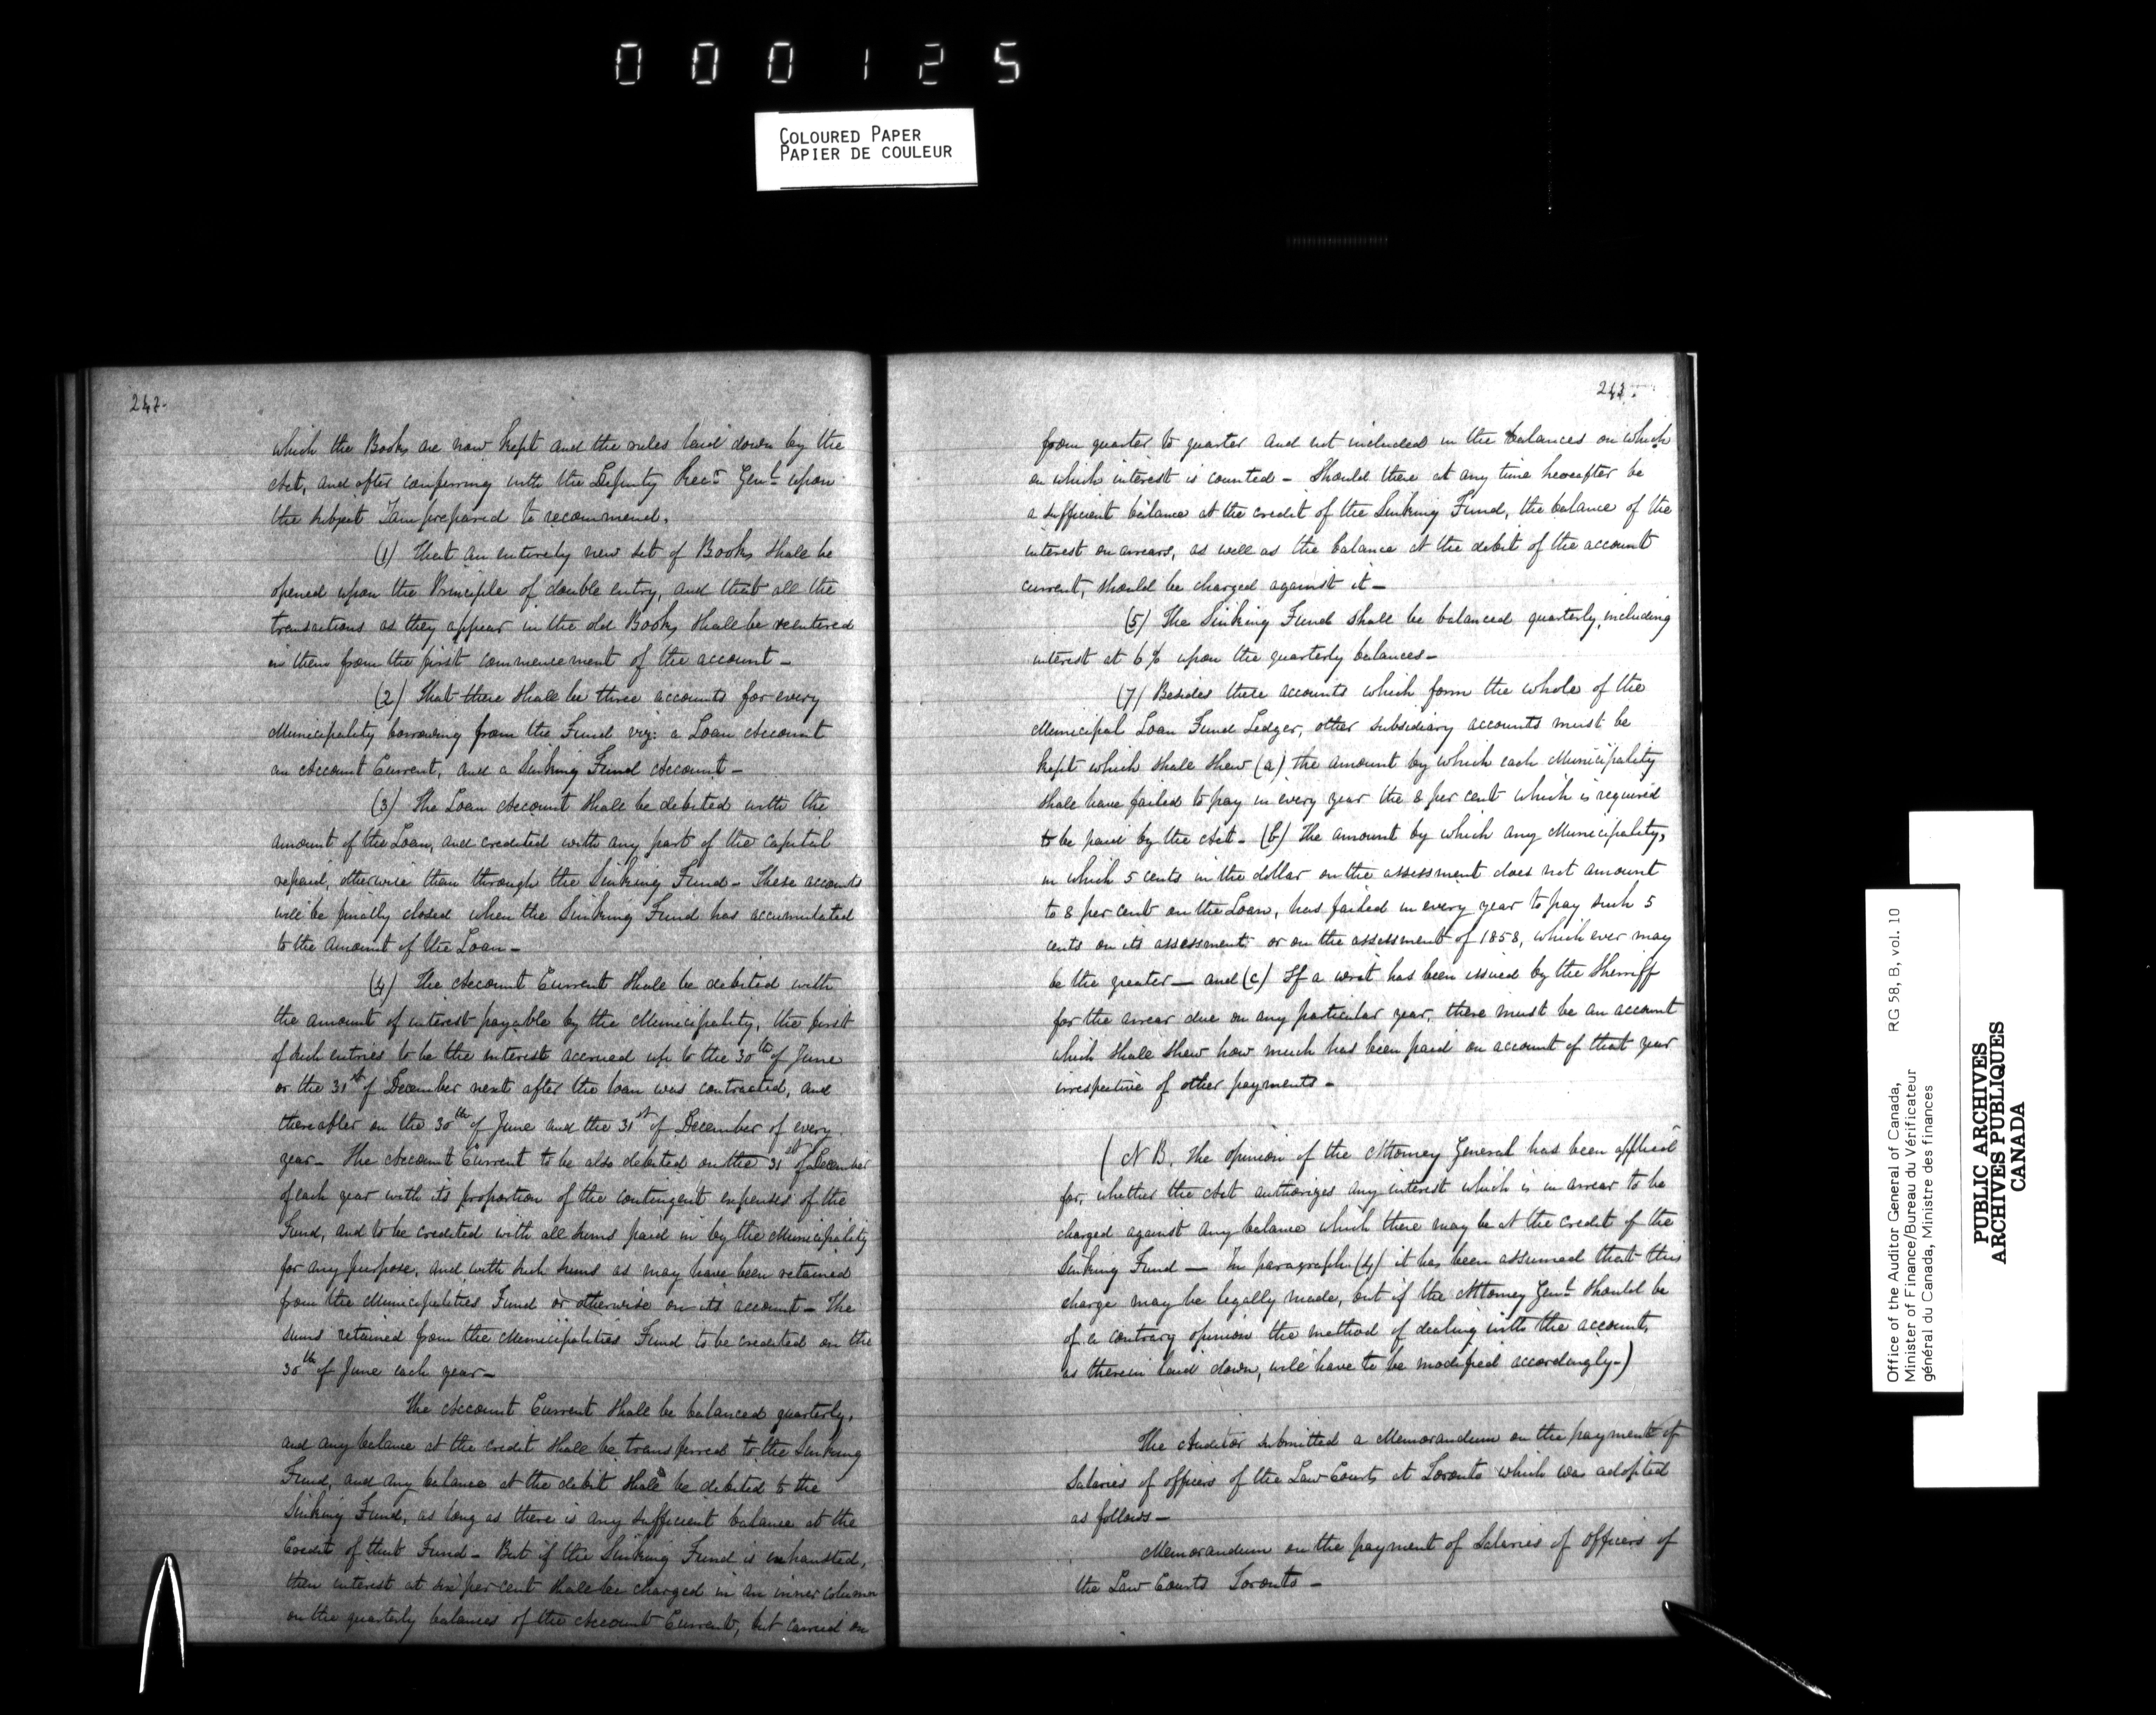 000125
COLOURED PAPER
PAPIER DE COULEUR
242.
which the Books are now kept and the rules laid down by the
Act, and after conferring with the Deputy Recr Genl upon
the subject I am prepared to recommend,
(1) That an entirely new set of Books shall be
opened upon the Principle of double entry, and that all the
transactions as they appear in the old Books shall be reentered
in them from the first commencement of the account -
(2) That there shall be three accounts for every
Municipality borrowing from the Fund viz: a Loan Account
an Account Current, and a Sinking Fund Account -
(3) The Loan Account shall be debited with the
amount of the Loan, and credited with any part of the Capital
repaid, otherwise than through the Sinking Fund - These accounts
will be finally closed when the Sinking Fund has accumulated
to the amount of the Loan -
(4) The Account Current shall be debited with
the amount of interest payable by the Municipality, the first
of such entries to be the interest accrued up to the 30th of June
or the 31st of December next after the loan was contracted, and
thereafter on the 30th of June and the 31st of December of every
year - The Account Current to be also debited on the 31st of December
of each year with its proportion of the contingent expenses of the
Fund, and to be credited with all sums paid in by the Municipality
for any purpose, and with such sums as may have been retained
from the Municipalities Fund or otherwise on its account - The
sums retained from the Municipalities Fund to be credited on the
30th of June each year -
The Account Current shall be balanced quarterly,
and any balance at the credit shall be transferred to the Sinking
Fund, and any balance at the debit shall be debited to the
Sinking Fund, as long as there is any sufficient balance at the
Credit of that Fund - But if the Sinking Fund is exhausted,
then interest at six per cent shall be charged in an inner column
on the quarterly balances of the Account Current, but carried on
243.
from quarter to quarter and not included in the balances on which
on which interest is counted - Should there at any time hereafter be
a sufficient balance at the credit of the Sinking Fund, the balance of the
interest on arrears, as well as the balance at the debit of the account
current, should be charged against it -
(5) The Sinking Fund shall be balanced quarterly, including
interest at 6 % upon the quarterly balances -
(7) Besides these accounts which form the whole of the
Municipal Loan Fund Ledger, other subsidiary accounts must be
kept which shall shew (a) the amount by which each Municipality
shall have failed to pay in every year the 8 per cent which is required
to be paid by the Act - (b) The amount by which any Municipality,
in which 5 cents in the dollar on the assessment does not amount
to 8 per cent on the Loan, has failed in every year to pay such 5
cents on its assessment or on the assessment of 1858, which ever may
be the greater — and (c) If a writ has been issued by the Sherriff
for the arrear due on any particular year, there must be an account
which shall shew how much has been paid on account of that year
irrespective of other payments -
(N B. The opinion of the Attorney General has been applied
for, whether the Act authorizes any interest which is in arrear to be
charged against any balance which there may be at the credit of the
Sinking Fund — In paragraph (4) it has been assumed that this
charge may be legally made, but if the Attorney Genl should be
of a contrary opinion the method of dealing with the account,
as therein laid down, will have to be modified accordingly -)
The Auditor submitted a Memorandum on the payment of
Salaries of officers of the Law Courts at Toronto which was adopted
as follows -
Memorandum on the payment of Salaries of Officers of
the Law Courts Toronto -
Office of the Auditor General of Canada, RG 58, B, vol. 10
Minister of Finance/Bureau du Vérificateur
général du Canada, Ministre des finances
PUBLIC ARCHIVES
ARCHIVES PUBLIQUES
CANADA